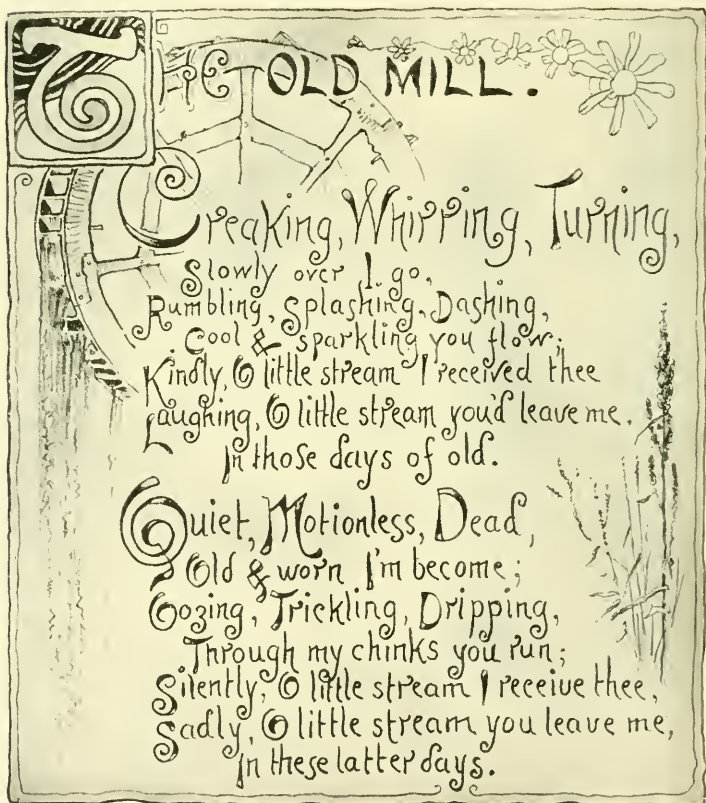 THE OLD MILL.
Creaking, Whirring, Turning,
Slowly over I go,
Rumbling, Splashing, Dashing,
Cool & sparkling you flow;
Kindly, O little stream I received thee
Laughing, O little stream you'd leave me,
In those days of old.
Quiet, Motionless, Dead,
Old & worn I'm become;
Oozing, Trickling, Dripping,
Through my chinks you run;
Silently, O little stream I receive thee,
Sadly, O little stream you leave me,
In these latter days.